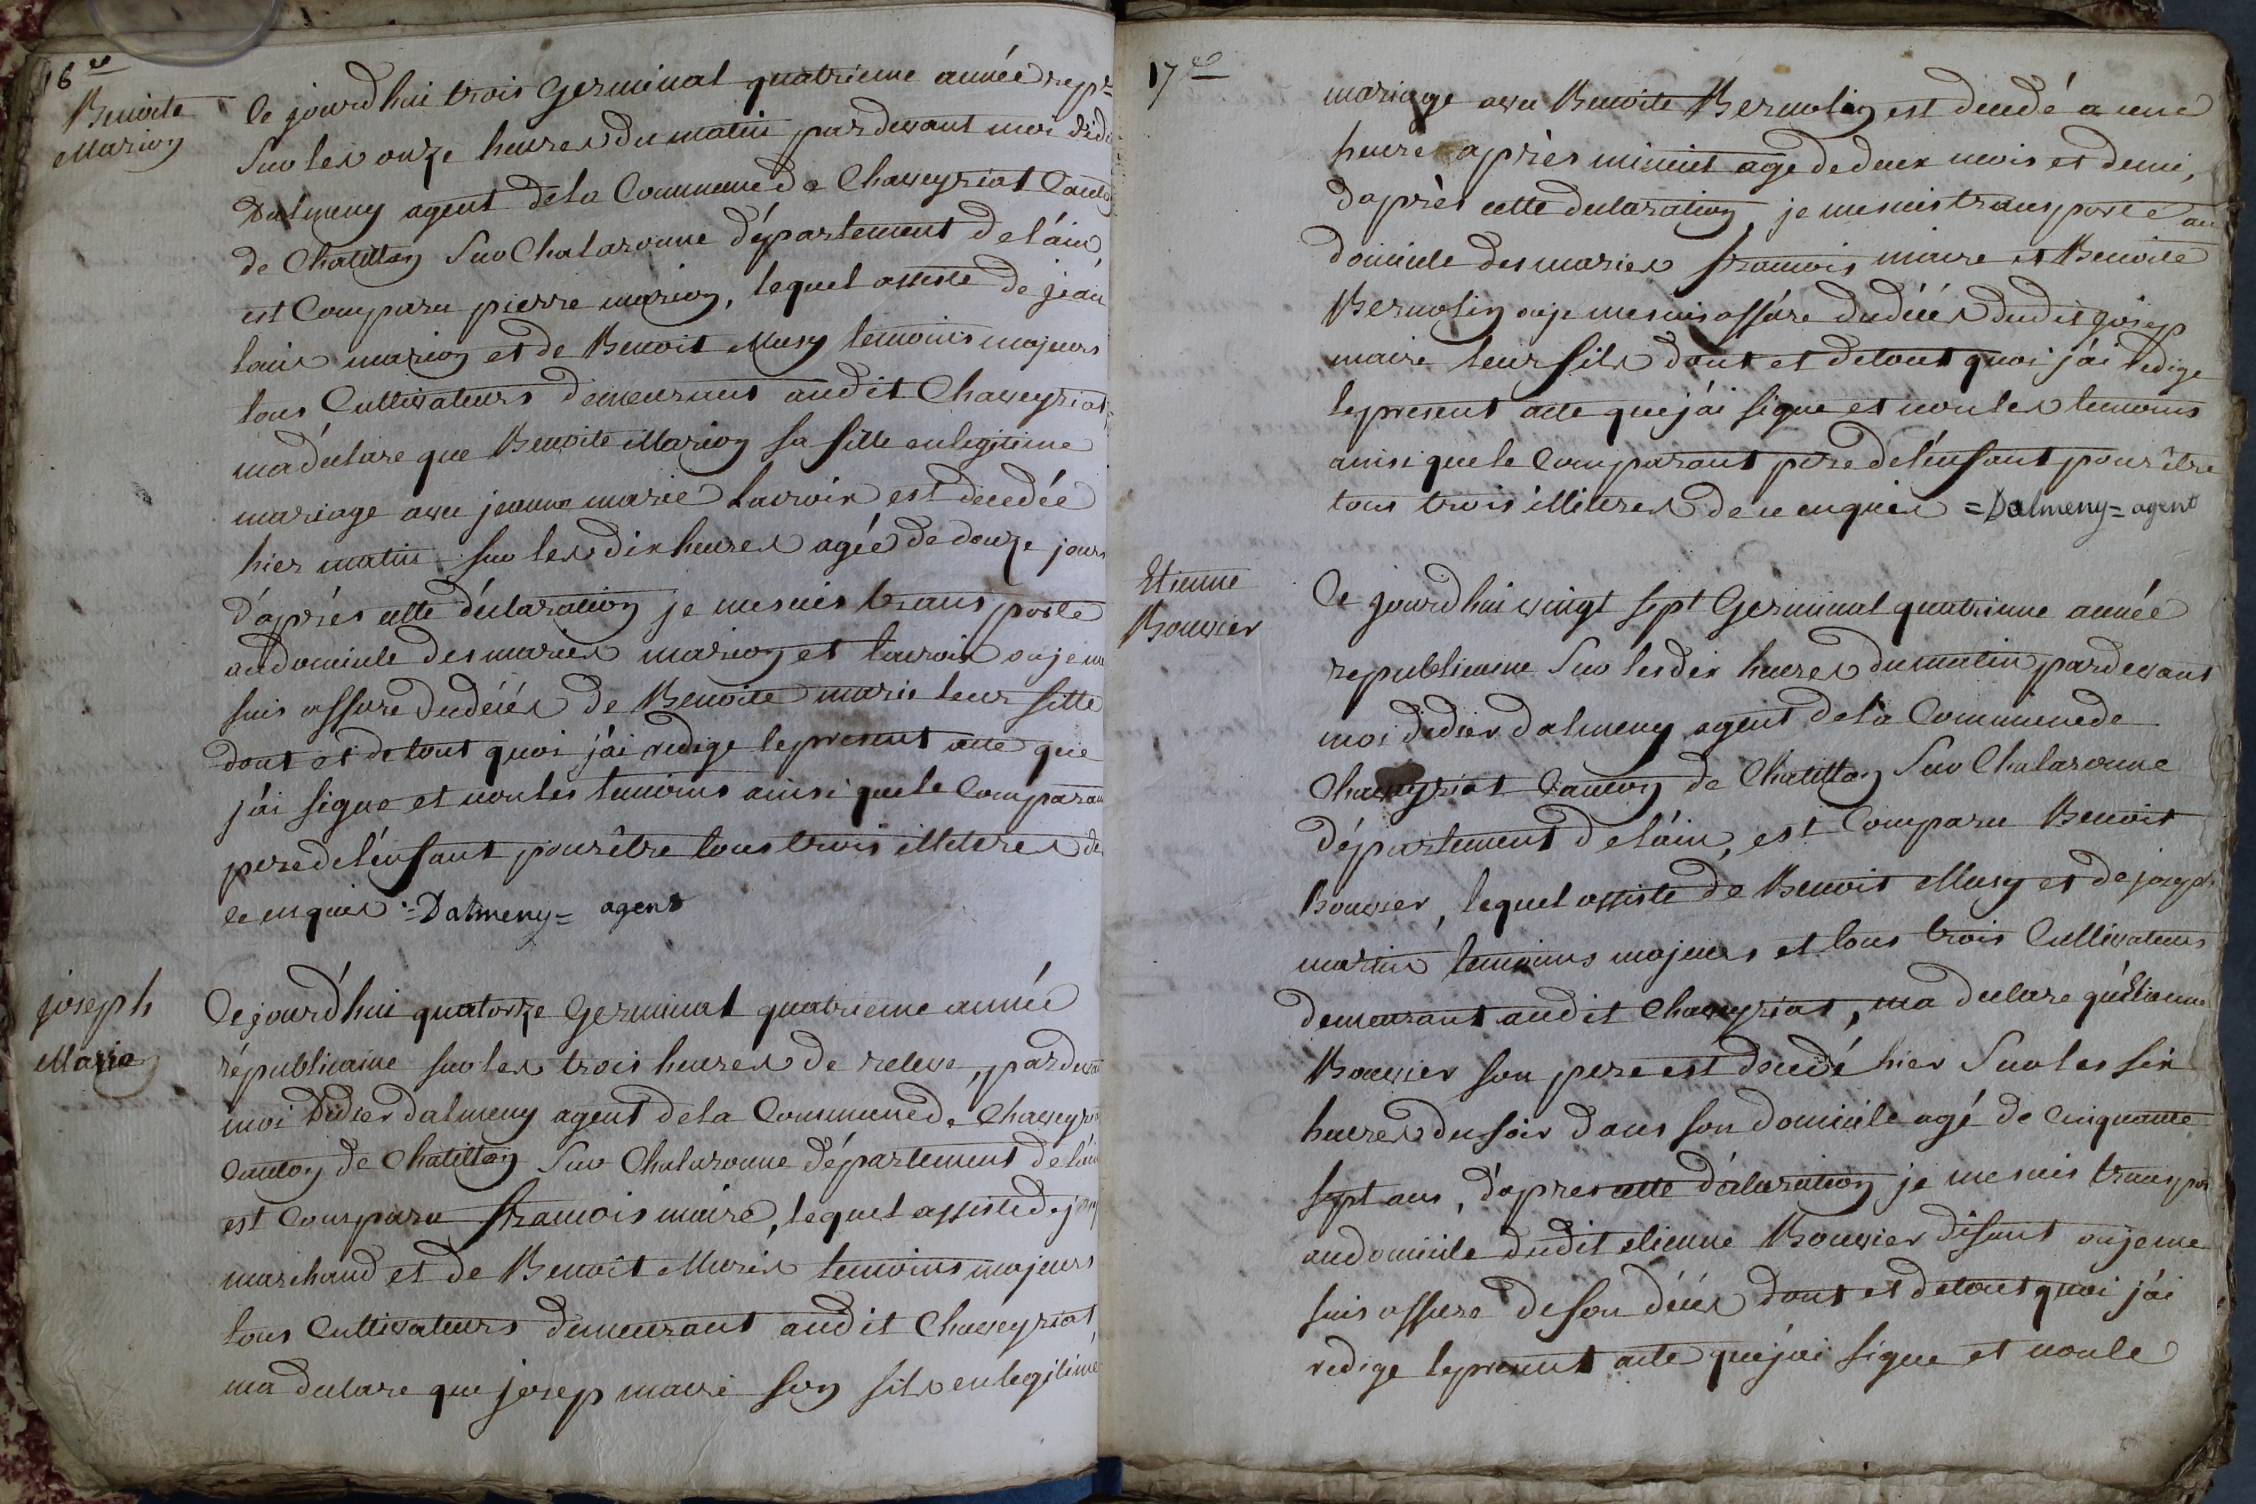 16e
Benoite
Marion
Ce jourdhui trois Germinal quatrieme année rep
Sur les onze heures du matin par devant moi didi
Dalmeny agent de la Commune de Chaveyriat Canto
de Chatillon Sur Chalaronne département de láin,
est Comparu pierre marion, lequel assisté de jéan
louis marion et de Benoit Musy temoins majeurs
tous Cultivateurs demeurant audit Chaveyriat,
ma déclare que Benoite Marion sa fille en legitime
mariage avec jeanne marie Lacroix est decedée
hier matin sur les dix heures agée de douze jours
dáprès cette déclaration je me suis transporté
au domicile des mariés marion et lacroix ou je me
suis assure du décés de Benoite marie leur fille
dont et de tout quoi jái redige le present acte que
jái signe et non les temoins ainsi que le Comparan
pere de lénfant pour être tous trois illiteres de
ce enquis =Dalmeny= agent
joseph
Marion
Ce jourd'hui quatorze Germinal quatrieme année
républicaine sur les trois heures de releve, par deva
moi Didier dalmeny agent de la Commune de Chaveyri
Canton de Chatillon Sur Chalaronne département de láin
est Comparu francois maire, lequel assisté de
marchand et de Benoît Muzis temoins majeurs
tous Cultivateurs demeurant audit Chaveyriat,
ma declare que josep maire son fils en legitime
17e
mariage avec Benoite Bernolin est decedé a une
heure après minuit age de deux mois et demi,
dáprès cette declaration, je me suis transporté au
domicile des mariés francois maire et Benoite
Bernolin ou je me suis assúre du décés dudit josep
maire leur fils dont et de tout quoi jái redige
le present acte que jái signe et non les temoins
ainsi que le Comparant pere de lénfant pour être
tous trois illiteres de ce enquis =Dalmeny= agent
Etienne
Bouvier
Ce jourdhui vingt sept Germinal quatrieme année
republicaine Sur les dix heures du matin par devant
moi didier dalmeny agent de la Commune de
Chaveyriat Canton de Chatillon Sur Chalaronne
département de láin, est Comparu Benoit
Bouvier, lequel assisté de Benoit Musy et de joseph
marin temoins majeurs et tous trois Cultivateurs
demeurant audit Chaveyriat, ma declare qu'Etienne
Bouvier son pere est decedé hier Sur les six
heures du soir dans son domicile agé de cinquante
sept ans, d'apres cette déclaration je me suis transpor
au domicile dudit etienne Bouvier disant ou je me
suis assure de son décés dont et de tout quoi jái
redige le present acte que jai signe et non le